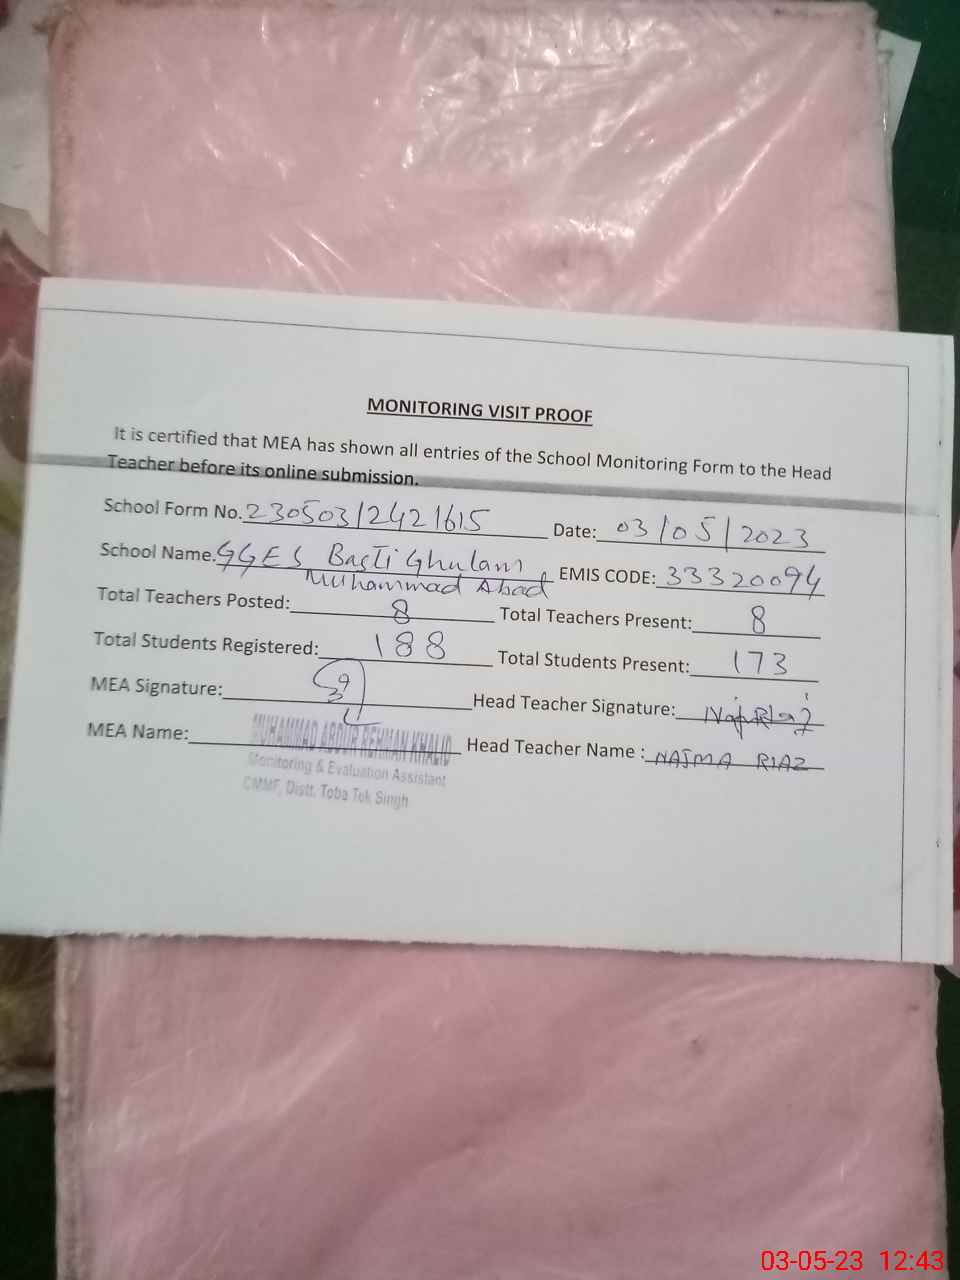 MONITORING VISIT PROOF
It is certified that MEA has shown all entries of the School Monitoring Form to the Head
Teacher before its online submission.
School Form No. 230503/2421615 Date: 03/05/2023
School Name. GGES Basti Ghulam Muhammad Abad EMIS CODE: 33320094
Total Teachers Posted: 8 Total Teachers Present: 8
Total Students Registered: 188 Total Students Present: 173
MEA Signature: Head Teacher Signature:
MEA Name: MUHAMMAD ABDUR REHMAN KHALID Head Teacher Name : NAJMA RIAZ
Monitoring & Evaluation Assistant
CMMF, Distt. Toba Tek Singh
03-05-23 12:43